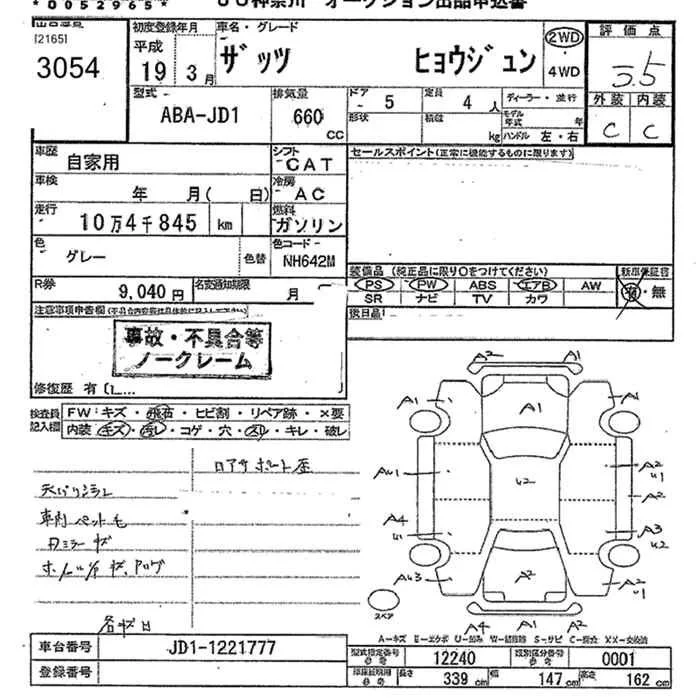 *0052965*
JU神奈川 オークション出品申込書
[2165]
3054
初度登録年月
平成
19 3月
車名・グレード
ザッツ ヒョウジュン
2WD
4WD
評価点
3.5
外装 内装
C C
型式
ABA-JD1
排気量
660 CC
ドア
- 5
定員
4人
形状
積載
kg
ディーラー・並行
モデル年式 年
ハンドル 左・右
車歴
自家用
シフト
CAT
車検
年 月( 日)
冷房
AC
走行
10万4千845 km
燃料
ガソリン
色
グレー
色替
色コード
NH642M
セールスポイント(正常に機能するものに限ります)
装備品 (純正品に限り○をつけてください)
新車保証書
PS PW ABS エアB AW
有・無
SR ナビ TV カワ
後日品
R券
9,040円
名変通知期限
月
注意事項申告欄
事故・不具合等
ノークレーム
修復歴 有(
検査員
記入欄
FW:キズ・飛石・ヒビ割・リペア跡・×要
内装:キズ・汚レ・コゲ・穴・スレ・キレ・破レ
車内ペット毛
A2 A1
A1 A1 A1
AW1 U2 A2 U1
A2
A4 U1 A3 U2
AU3 A2 A2 U1
A4 A1 A2
スペア
車台番号
JD1-1221777
登録番号
型式指定番号
12240
類別区分番号
0001
長さ
339 cm
幅
147 cm
高さ
162 cm